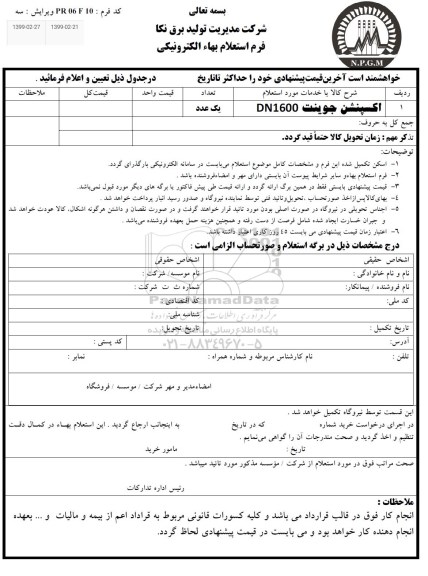 بسمه تعالی
کد فرم : PR 06 F 10 ویرایش : سه
شرکت مدیریت تولید برق نکا
فرم استعلام بهاء الکترونیکی
1399-02-27
1399-02-21
N.P.G.M
خواهشمند است آخرین قیمت پیشنهادی خود را حداکثر تا تاریخ درجدول ذیل تعیین و اعلام فرمائید .
ردیف شرح کالا یا خدمات مورد استعلام تعداد قیمت واحد قیمت کل ملاحظات
۱ اکسپنشن جوینت DN1600 یک عدد
جمع کل به حروف:
تذکر مهم : زمان تحویل کالا حتماً قید گردد.
توضیحات:
۱- اسکن تکمیل شده این فرم و مشخصات کامل موضوع استعلام می‌بایست در سامانه الکترونیکی بارگذاری گردد.
۲- فرم استعلام بهاء و سایر شرایط پیوست آن بایستی دارای مهر و امضاءفروشنده باشد .
۳- قیمت پیشنهادی بایستی فقط در همین برگ ارائه گردد و ارائه قیمت طی پیش فاکتور یا برگه های دیگر مورد قبول نمی‌باشد.
۴- بهای‌کالاپس‌ازاخذ صورتحساب ،تحویل‌وتائید فنی توسط نماینده نیروگاه و صدور رسید انبار پرداخت خواهد شد .
۵- اجناس تحویلی در نیروگاه در صورت اصلی بودن مورد تائید قرار خواهند گرفت و در صورت نقصان و داشتن هرگونه اشکال، کالا عودت خواهد شد
و جبران خسارت ایجاد شده شامل فرصت از دست رفته و همچنین هزینه حمل بعهده فروشنده می‌باشد .
۶- اعتبار زمان قیمت پیشنهادی می بایست ۴۵ روز کاری اعتبار داشته باشد.
درج مشخصات ذیل در برگه استعلام و صورتحساب الزامی است :
اشخاص حقیقی اشخاص حقوقی
نام و نام خانوادگی : نام موسسه/ شرکت :
نام فروشنده / پیمانکار: شماره ث ت شرکت :
کد ملی: کد اقتصادی:
شناسه ملی:
تاریخ تکمیل : تاریخ تحویل:
آدرس: کد پستی :
تلفن : نام کارشناس مربوطه و شماره همراه : نمابر :
ParsNamadData
پایگاه اطلاع رسانی
۰۲۱-۸۸۳۴۹۶۷۰-۵
امضاءمدیر و مهر شرکت / موسسه / فروشگاه
این قسمت توسط نیروگاه تکمیل خواهد شد .
در اجرای درخواست خرید شماره که در تاریخ به اینجانب ارجاع گردید . این استعلام بهاء در کمال دقت
تنظیم و اخذ گردید و صحت مندرجات آن را گواهی می‌نمایم .
تاریخ : مامور خرید
صحت مراتب فوق در مورد استعلام از شرکت / مؤسسه مذکور مورد تائید میباشد .
رئیس اداره تدارکات
ملاحظات :
انجام کار فوق در قالب قرارداد می باشد و کلیه کسورات قانونی مربوط به قراداد اعم از بیمه و مالیات و ... بعهده
انجام دهنده کار خواهد بود و می بایست در قیمت پیشنهادی لحاظ گردد.